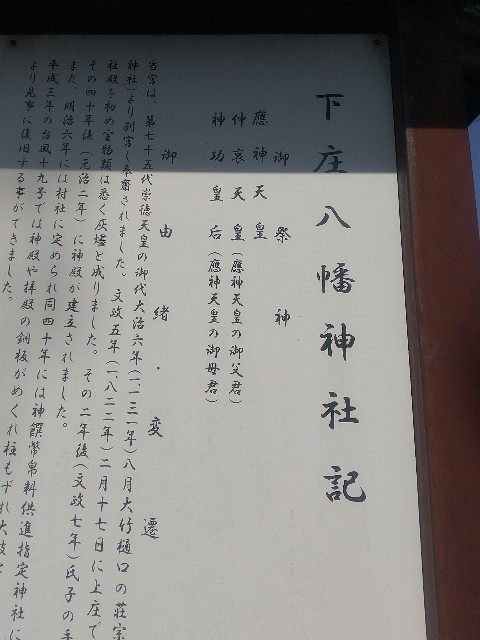 下庄八幡神社記
御祭神
應神天皇
仲哀天皇(應神天皇の御父君)
神功皇后(應神天皇の御母君)
御由緒・変遷
当宮は、第七十五代崇徳天皇の御代大治六年(一、一三一年)八月大竹樋口の荘宗
神社)より別宮し奉齋されました。文政五年(一、八二二年)二月十七日に上庄で
社殿を初め宝物類は悉く灰燼と成りました。その二年後(文政七年)氏子の手
その四十年後(元治二年)に神殿が建立されました。
また、明治六年には村社に定められ同四十年には神饌幣帛料供進指定神社に
平成三年の台風十九号では神殿や拝殿の銅板がめくれ柱もずれ大
より見事に復旧する事ができました。